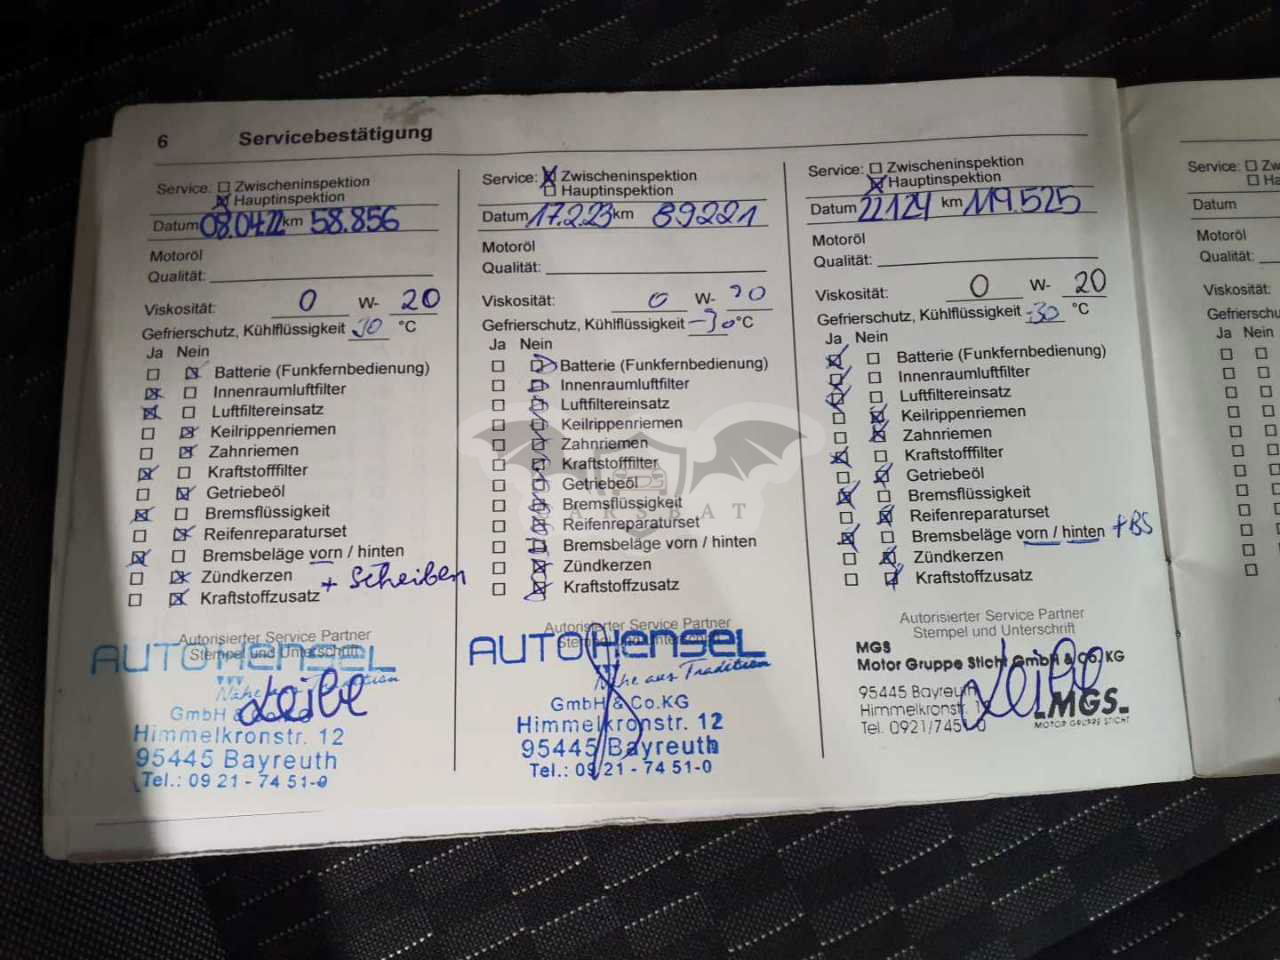 6 Servicebestätigung
Service: Zwischeninspektion
Hauptinspektion
Datum 08.04.22 km 58.856
Motoröl
Qualität:
Viskosität: 0 W- 20
Gefrierschutz, Kühlflüssigkeit °C
Ja Nein
Batterie (Funkfernbedienung)
Innenraumluftfilter
Luftfiltereinsatz
Keilrippenriemen
Zahnriemen
Kraftstofffilter
Getriebeöl
Bremsflüssigkeit
Reifenreparaturset
Bremsbeläge vorn / hinten
Zündkerzen + Scheiben
Kraftstoffzusatz
Autorisierter Service Partner
Stempel und Unterschrift
AUTO HENSEL
Nähe aus Tradition
GmbH & Co.KG
Himmelkronstr. 12
95445 Bayreuth
Tel.: 09 21 - 74 51-0
Service: Zwischeninspektion
Hauptinspektion
Datum 17.2.23 km 89221
Motoröl
Qualität:
Viskosität: 0 W- 20
Gefrierschutz, Kühlflüssigkeit -30 °C
Ja Nein
Batterie (Funkfernbedienung)
Innenraumluftfilter
Luftfiltereinsatz
Keilrippenriemen
Zahnriemen
Kraftstofffilter
Getriebeöl
Bremsflüssigkeit
Reifenreparaturset
Bremsbeläge vorn / hinten
Zündkerzen
Kraftstoffzusatz
Autorisierter Service Partner
AUTO HENSEL
Nähe aus Tradition
GmbH & Co.KG
Himmelkronstr. 12
95445 Bayreuth
Tel.: 09 21 - 74 51-0
Service: Zwischeninspektion
Hauptinspektion
Datum 22.1.24 km 119.525
Motoröl
Qualität:
Viskosität: 0 W- 20
Gefrierschutz, Kühlflüssigkeit -30 °C
Ja Nein
Batterie (Funkfernbedienung)
Innenraumluftfilter
Luftfiltereinsatz
Keilrippenriemen
Zahnriemen
Kraftstofffilter
Getriebeöl
Bremsflüssigkeit
Reifenreparaturset
Bremsbeläge vorn / hinten + BS
Zündkerzen
Kraftstoffzusatz
Autorisierter Service Partner
Stempel und Unterschrift
MGS
Motor Gruppe Sticht GmbH & Co. KG
95445 Bayreuth
Himmelkronstr.
Tel. 0921/7451-0
MGS
MOTOR GRUPPE STICHT
Service: Zw
Ha
Datum
Motoröl
Qualität:
Viskosität:
Gefrierschu
Ja Nein
CARSBAT